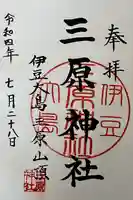 奉拝
三原神社
伊豆大島三原山頂
令和四年 七月二十八日